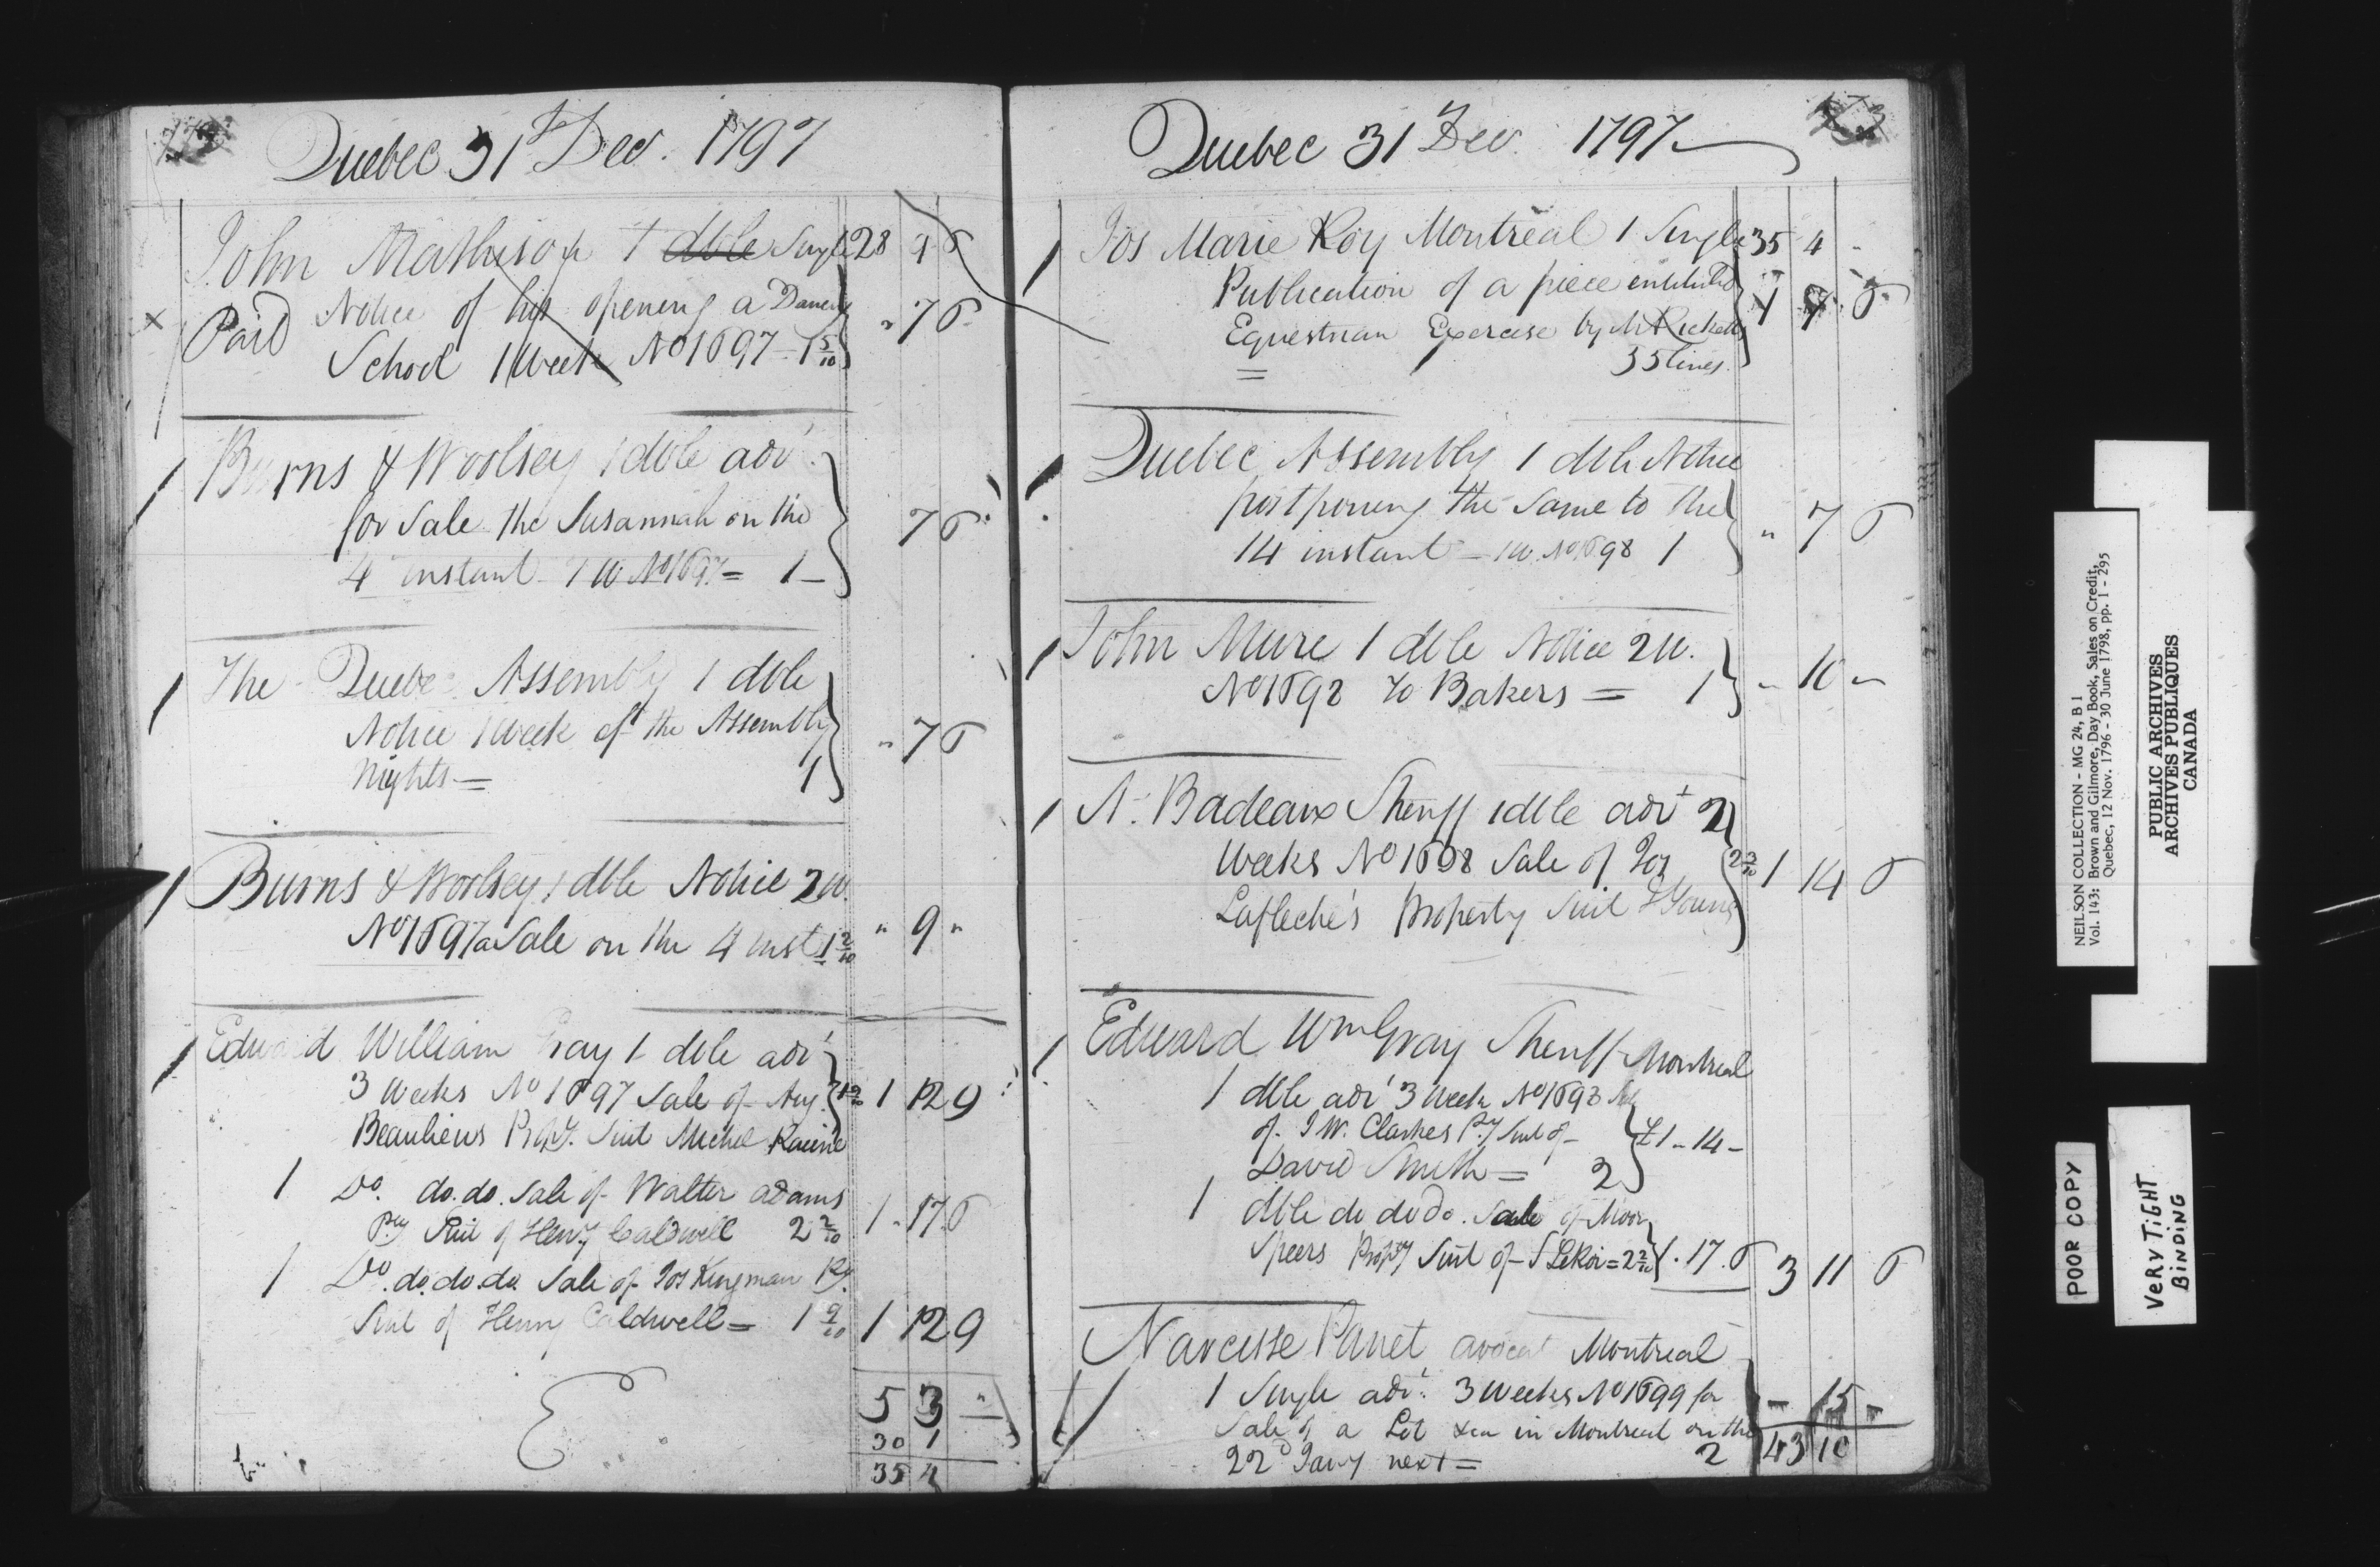 Quebec 31st Dec. 1797
John Mathison 1 dble Single 28 4 6
Paid Notice of his opening a Dancing
School 1 Week No 1697 - 1 5/10 " 7 6
Burns & Woolsey 1 dble adv.
for Sale the Susannah on the
4 instant - 1 W. No 1697 = 1 - 7 6
The Quebec Assembly 1 dble
Notice 1 Week of the Assembly
Nights = 1 " 7 6
Burns & Woolsey 1 dble Notice 2 W.
No 1697 a Sale on the 4 inst 1 2/10 " 9 "
Edward William Gray 1 dble adv
3 Weeks No 1697 Sale of Aug. 1 9/10 1 12 9
Beaulieus Propy. Suit Michel Racine
1 Do. do. do. Sale of Walter Adams
Pty Suit of Heny Caldwell 2 2/10 1 - 17 6
1 Do. do. do. do. Sale of Jos Kingman Py.
Suit of Henry Caldwell = 1 9/10 1 12 9
5 3 "
30 1
35 4
Quebec 31 Dec. 1797
Jos Marie Roy Montreal 1 Single 35 4 -
Publication of a piece entituled
Equestrian Exercise by Mr Ricketts
35 lines.
Quebec Assembly 1 dble Notice
postponing the same to the
14 instant - 1 W. No 1698 1 " 7 6
John Mure 1 dble Notice 2 W.
No 1698 to Bakers = 1 - 10 -
A. Badeaux Sheriff 1 dble advt 2
Weeks No 1698 Sale of Jos 2 3/10 1 14 6
Lafleche's property Suit J Young
Edward Wm Gray Sheriff Montreal
1 dble adv 3 Week No 1698 Sale
of J W. Clarkes Py Suit of - £1 - 14 -
David Smith = 2
1 dble do do do. Sale of Moor
Speers Propty Suit of - J LeRoi = 2 2/10 1 . 17 . 6 3 11 6
Narcisse Panet avocat Montreal
1 Single adv. 3 Weeks No 1699 for
Sale of a Lot &ca in Montreal on the - 15 -
22d Jany next = 2 43 10
NEILSON COLLECTION - MG 24, B 1
Vol. 143: Brown and Gilmore, Day Book, Sales on Credit,
Quebec, 12 Nov. 1796 - 30 June 1798, pp. 1 - 295
PUBLIC ARCHIVES
ARCHIVES PUBLIQUES
CANADA
POOR COPY
VERY TIGHT
BINDING